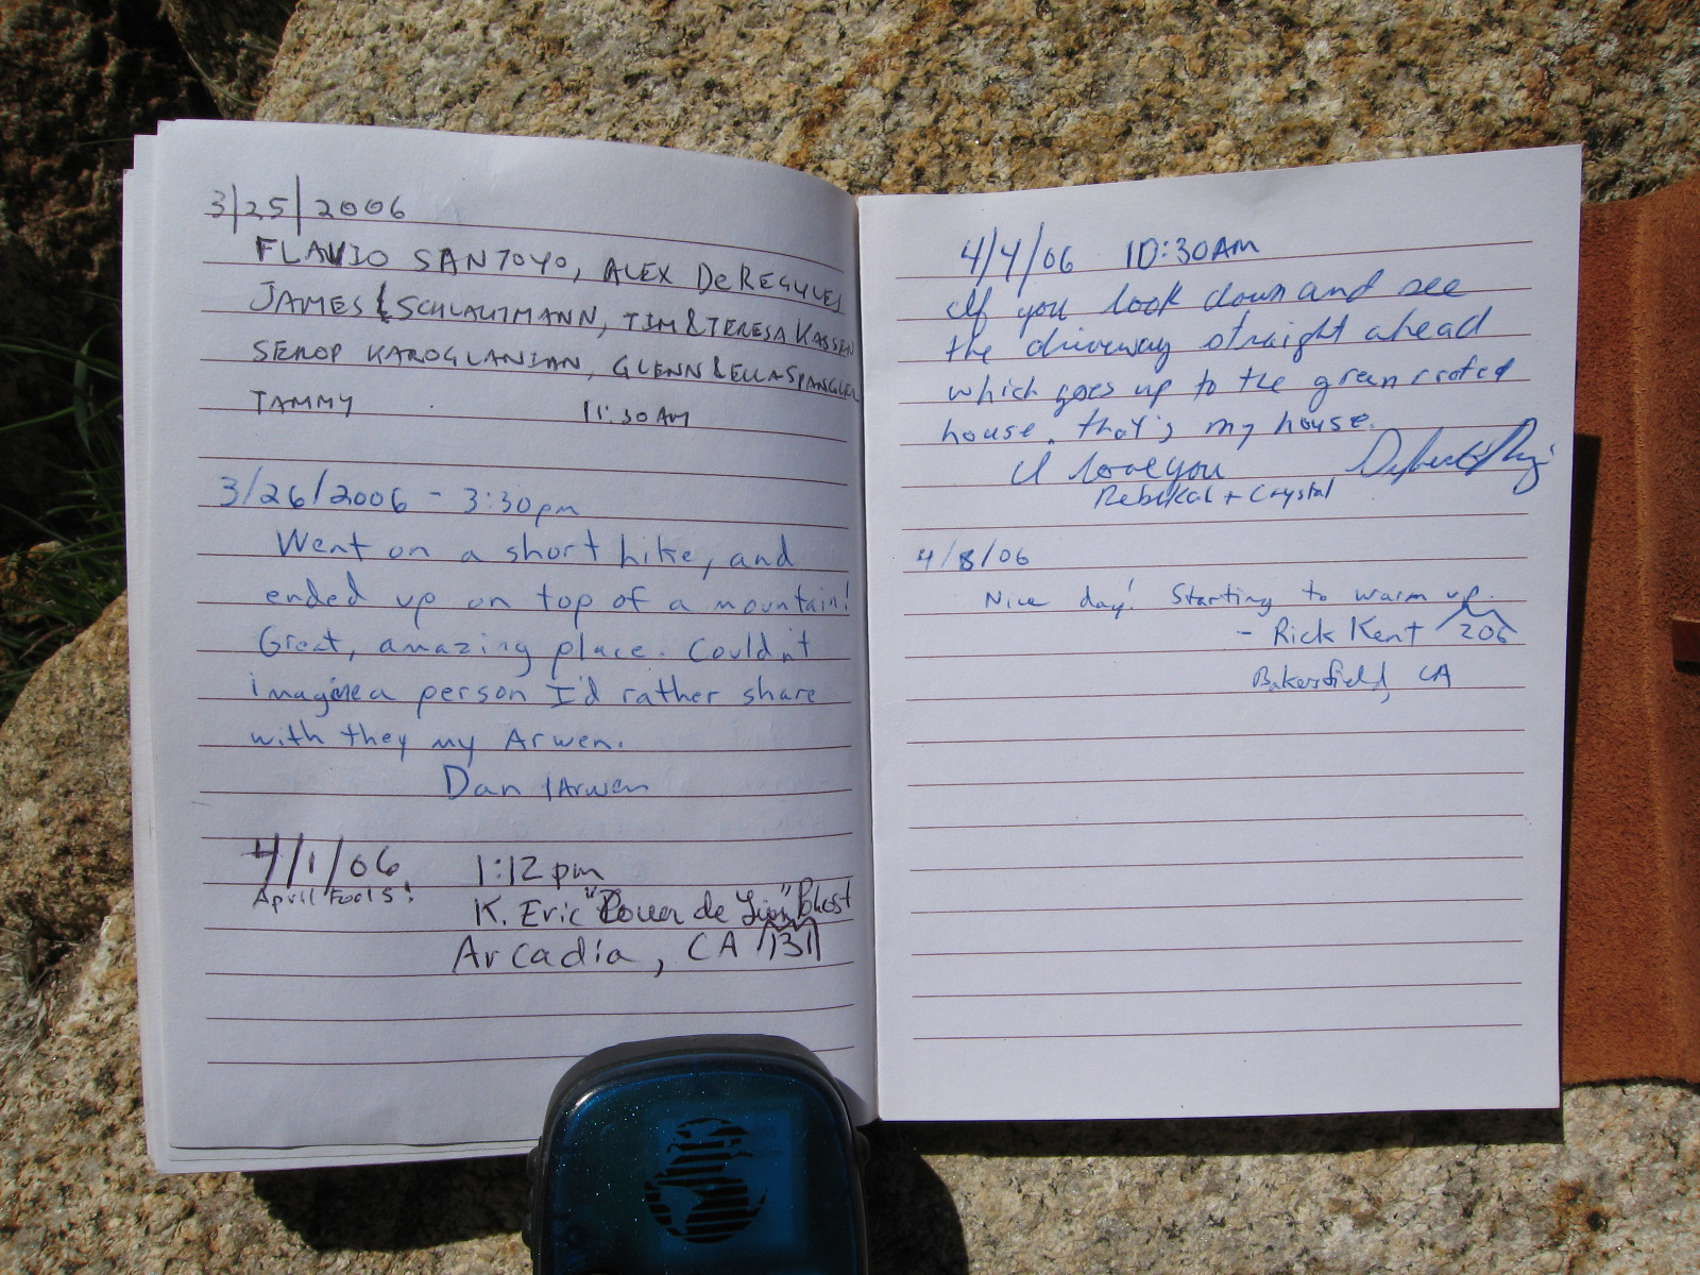 3/25/2006
FLAVIO SANTOYO, ALEX DeREGULES
JAMES & SCHLAUTMANN, TIM & TERESA KASSEN
SEROP KAROGLANIAN, GLENN & ELLA SPANGLER
TAMMY 11:30AM
3/26/2006 - 3:30pm
Went on a short hike, and
ended up on top of a mountain!
Great, amazing place. Couldn't
imagine a person I'd rather share
with they my Arwen.
Dan + Arwen
4/1/06 1:12pm
April Fools!
K. Eric " de
Arcadia, CA 131
4/4/06 10:30AM
If you look down and see
the driveway straight ahead
which goes up to the green roofed
house, that's my house.
I love you
Rebekah + Crystal
4/8/06
Nice day! Starting to warm up.
- Rick Kent 206
Bakersfield, CA